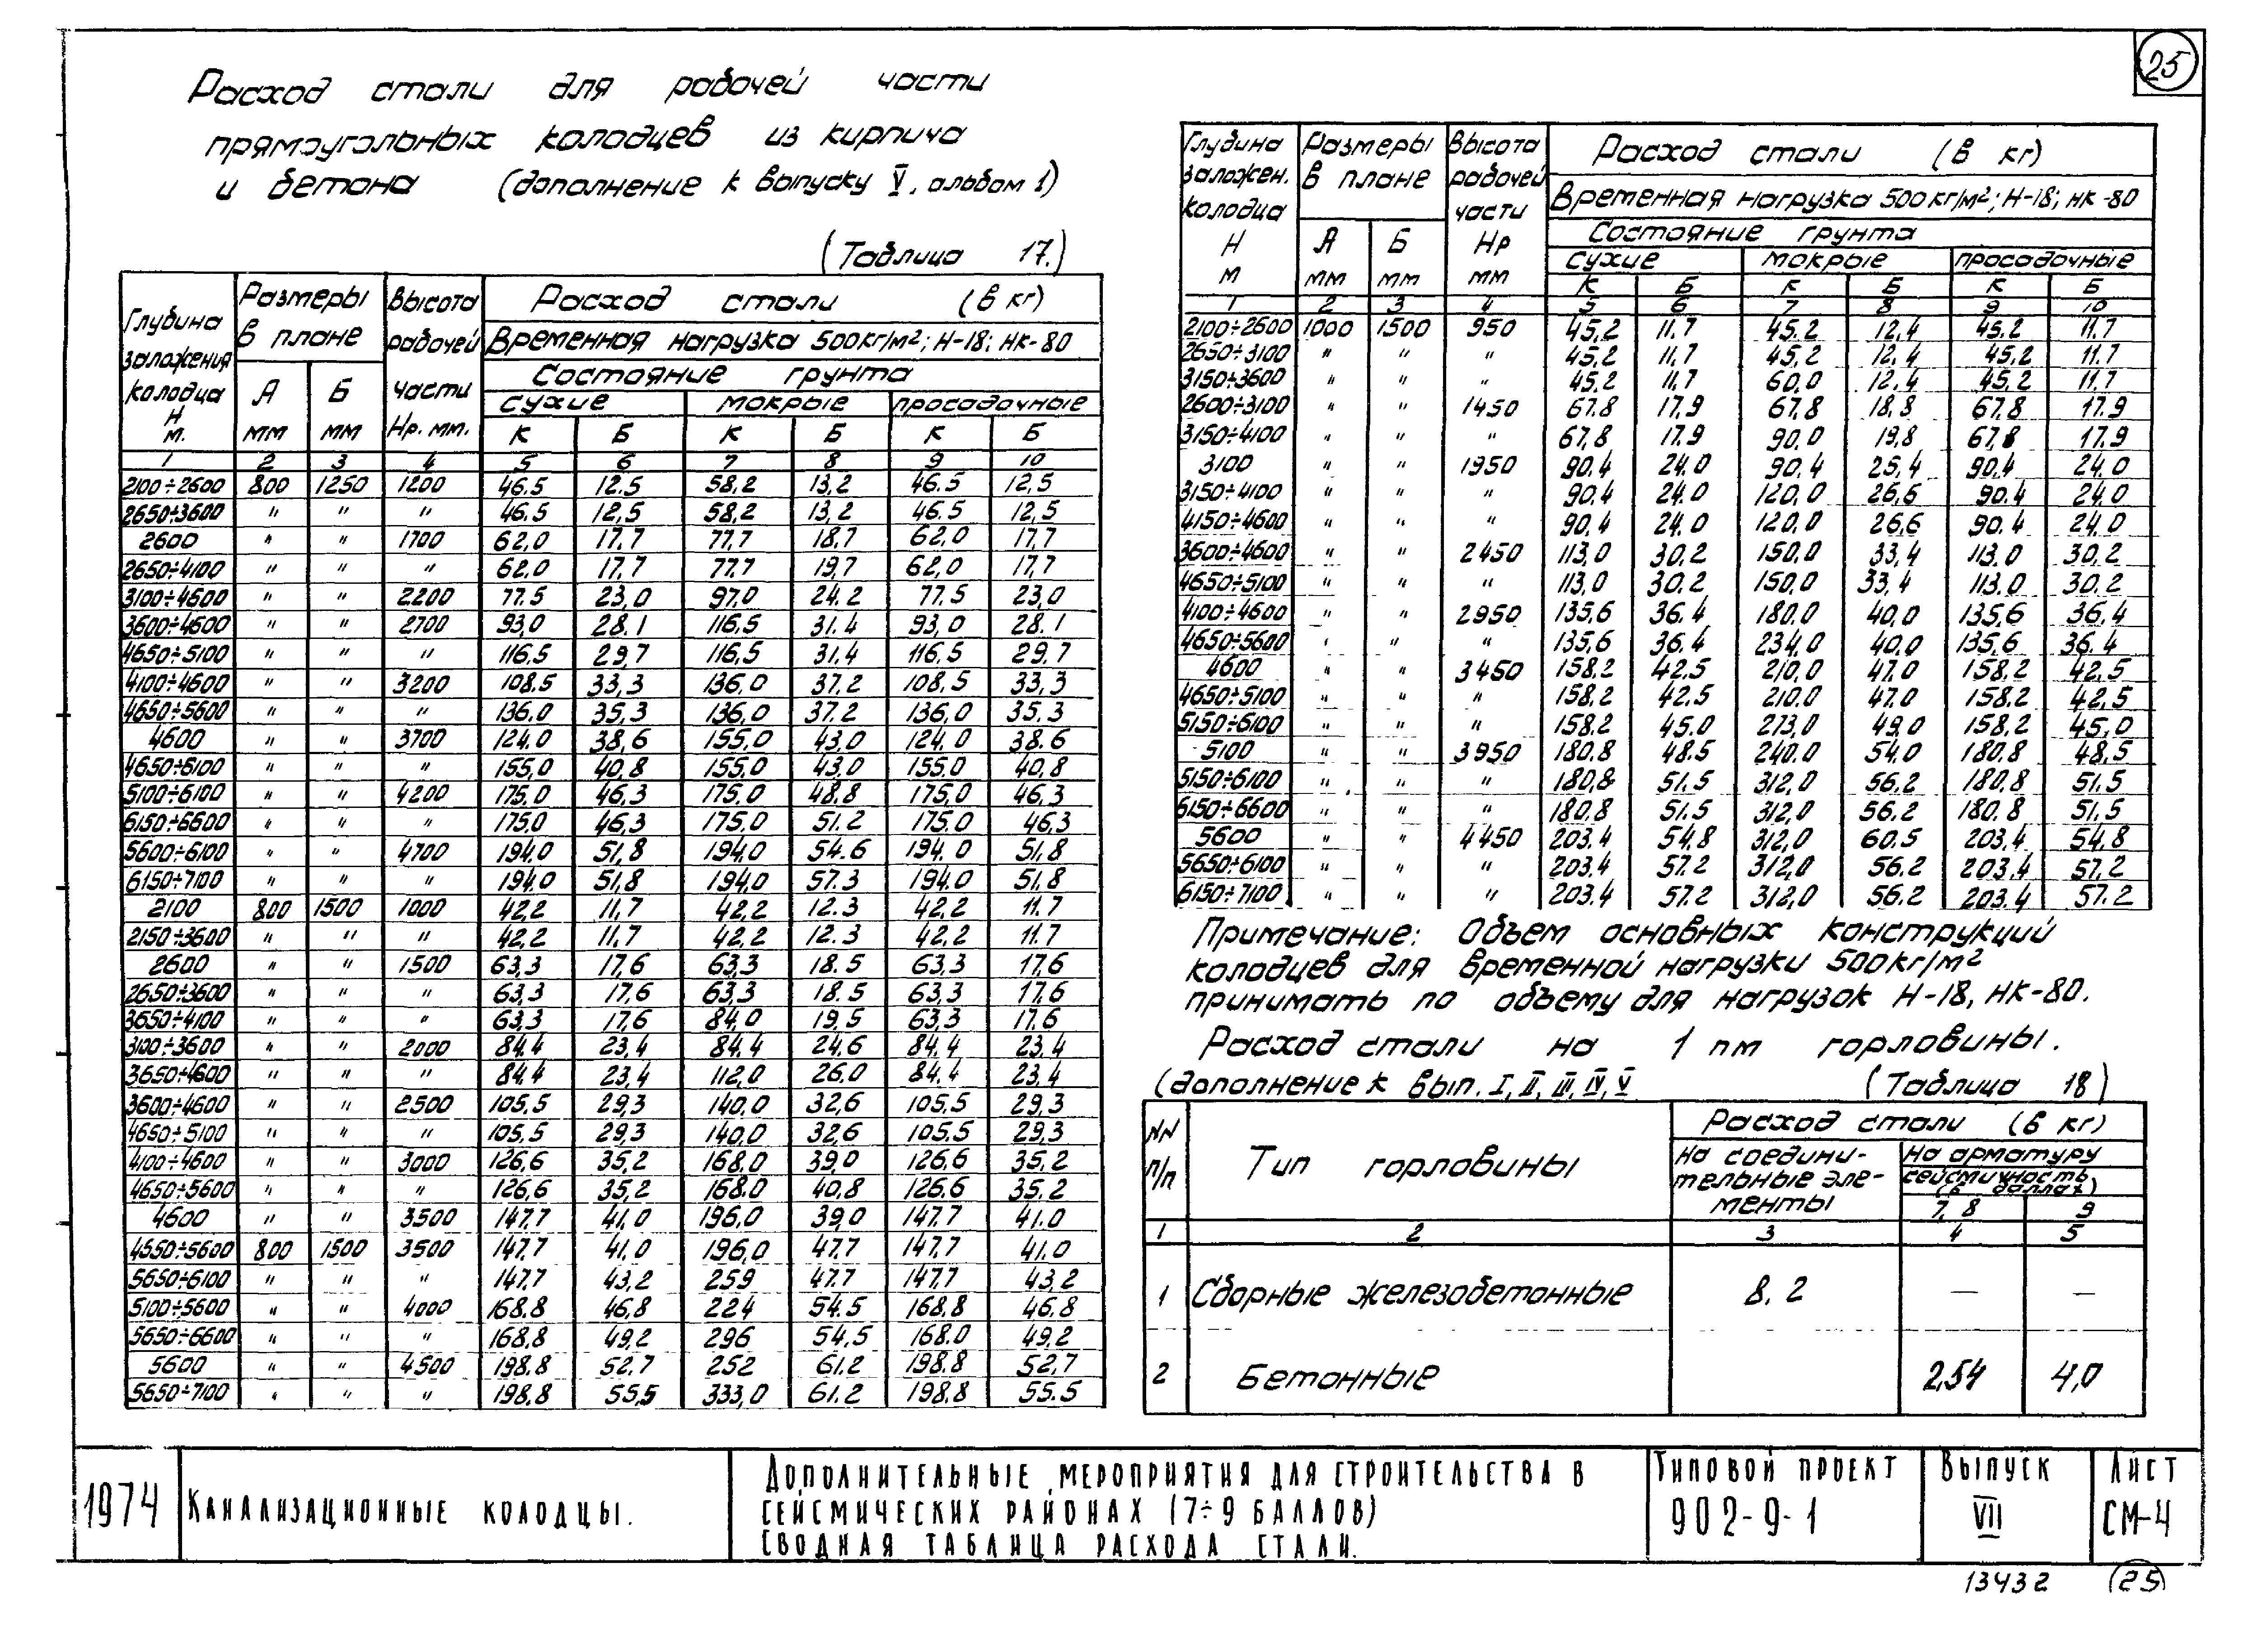 25
Расход стали для рабочей части
прямоугольных колодцев из кирпича
и бетона (дополнение к выпуску V, альбом 1)
(Таблица 17.)
Глубина заложения колодца Н м. | Размеры в плане | Высота рабочей части Нр. мм. | Расход стали (в кг)
Временная нагрузка 500кг/м²; Н-18; НК-80
Состояние грунта
А мм | Б мм | сухие | мокрые | просадочные
К Б К Б К Б
1 2 3 4 5 6 7 8 9 10
2100÷2600 800 1250 1200 46.5 12.5 58.2 13,2 46.5 12,5
2650÷3600 " " " 46.5 12,5 58,2 13,2 46.5 12,5
2600 " " 1700 62,0 17.7 77.7 18,7 62,0 17,7
2650÷4100 " " " 62.0 17.7 77.7 19,7 62,0 17.7
3100÷4600 " " 2200 77.5 23,0 97.0 24.2 77.5 23,0
3600÷4600 " " 2700 93,0 28.1 116,5 31.4 93,0 28.1
4650÷5100 " " " 116.5 29,7 116,5 31,4 116,5 29.7
4100÷4600 " " 3200 108.5 33,3 136,0 37.2 108,5 33,3
4650÷5600 " " " 136.0 35.3 136,0 37.2 136,0 35.3
4600 " " 3700 124.0 38,6 155,0 43,0 124.0 38.6
4650÷6100 " " " 155,0 40,8 155.0 43.0 155.0 40,8
5100÷6100 " " 4200 175.0 46,3 175.0 48.8 175,0 46,3
6150÷6600 " " " 175.0 46,3 175,0 51.2 175.0 46,3
5600÷6100 " " 4700 194.0 51,8 194,0 54.6 194.0 51,8
6150÷7100 " " " 194.0 51,8 194,0 57.3 194.0 51,8
2100 800 1500 1000 42,2 11,7 42,2 12.3 42,2 11.7
2150÷3600 " " " 42,2 11,7 42,2 12.3 42,2 11.7
2600 " " 1500 63,3 17,6 63,3 18.5 63,3 17,6
2650÷3600 " " " 63,3 17,6 63,3 18.5 63,3 17.6
3650÷4100 " " " 63,3 17,6 84,0 19.5 63,3 17.6
3100÷3600 " " 2000 84.4 23,4 84,4 24,6 84,4 23,4
3650÷4600 " " " 84.4 23,4 112,0 26.0 84,4 23,4
3600÷4600 " " 2500 105,5 29,3 140,0 32,6 105,5 29,3
4650÷5100 " " " 105,5 29,3 140,0 32,6 105.5 29,3
4100÷4600 " " 3000 126,6 35,2 168,0 39,0 126,6 35,2
4650÷5600 " " " 126,6 35,2 168.0 40,8 126.6 35,2
4600 " " 3500 147.7 41,0 196,0 39,0 147.7 41.0
4650÷5600 800 1500 3500 147.7 41,0 196,0 47.7 147.7 41.0
5650÷6100 " " " 147.7 43,2 259 47.7 147.7 43,2
5100÷5600 " " 4000 168.8 46,8 224 54.5 168,8 46,8
5650÷6600 " " " 168,8 49,2 296 54,5 168.0 49,2
5600 " " 4500 198.8 52,7 252 61,2 198.8 52,7
5650÷7100 " " " 198.8 55,5 333,0 61.2 198.8 55.5
Глубина заложен. колодца Н м | Размеры в плане | Высота рабочей части Нр мм | Расход стали (в кг)
Временная нагрузка 500кг/м²; Н-18; НК-80
Состояние грунта
А мм | Б мм | сухие | мокрые | просадочные
К Б К Б К Б
1 2 3 4 5 6 7 8 9 10
2100÷2600 1000 1500 950 45,2 11.7 45.2 12,4 45,2 11.7
2650÷3100 " " " 45,2 11,7 45,2 12,4 45,2 11.7
3150÷3600 " " " 45,2 11,7 60,0 12,4 45,2 11.7
2600÷3100 " " 1450 67.8 17,9 67.8 18,8 67.8 17.9
3150÷4100 " " " 67,8 17.9 90,0 19,8 67,8 17.9
3100 " " 1950 90.4 24.0 90,4 25,4 90,4 24,0
3150÷4100 " " " 90.4 24.0 120,0 26,6 90.4 24,0
4150÷4600 " " " 90,4 24,0 120,0 26,6 90.4 24,0
3600÷4600 " " 2450 113,0 30,2 150,0 33,4 113.0 30,2
4650÷5100 " " " 113,0 30,2 150,0 33,4 113.0 30,2
4100÷4600 " " 2950 135,6 36,4 180,0 40,0 135,6 36,4
4650÷5600 " " " 135,6 36,4 234,0 40,0 135,6 36.4
4600 " " 3450 158.2 42.5 210,0 47.0 158,2 42,5
4650÷5100 " " " 158,2 42.5 210.0 47.0 158,2 42,5
5150÷6100 " " " 158.2 45.0 273,0 49,0 158,2 45,0
5100 " " 3950 180.8 48.5 240.0 54.0 180.8 48,5
5150÷6100 " " " 180,8 51.5 312,0 56.2 180,8 51,5
6150÷6600 " " " 180.8 51.5 312,0 56.2 180.8 51,5
5600 " " 4450 203.4 54.8 312,0 60.5 203.4 54,8
5650÷6100 " " " 203.4 57.2 312,0 56.2 203.4 57,2
6150÷7100 " " " 203.4 57.2 312,0 56.2 203.4 57.2
Примечание: Объем основных конструкций
колодцев для временной нагрузки 500кг/м²
принимать по объему для нагрузок Н-18, НК-80.
Расход стали на 1 пм горловины.
(дополнение к вып. I, II, III, IV, V (Таблица 18)
NN п/п | Тип горловины | Расход стали (в кг)
На соедини-
тельные эле-
менты
На арматуру
сейсмичность
(в баллах)
7, 8 | 9
1 2 3 4 5
1 Сборные железобетонные 8.2 — —
2 Бетонные 2,54 4,0
1974
Канализационные колодцы.
Дополнительные мероприятия для строительства в
сейсмических районах (7÷9 баллов)
Сводная таблица расхода стали.
Типовой проект
902-9-1
Выпуск
VII
Лист
СМ-4
13432
25